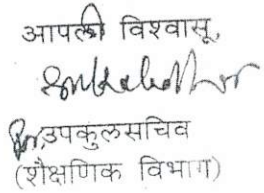 आपली विश्वासू,
उपकुलसचिव
(शैक्षणिक विभाग)